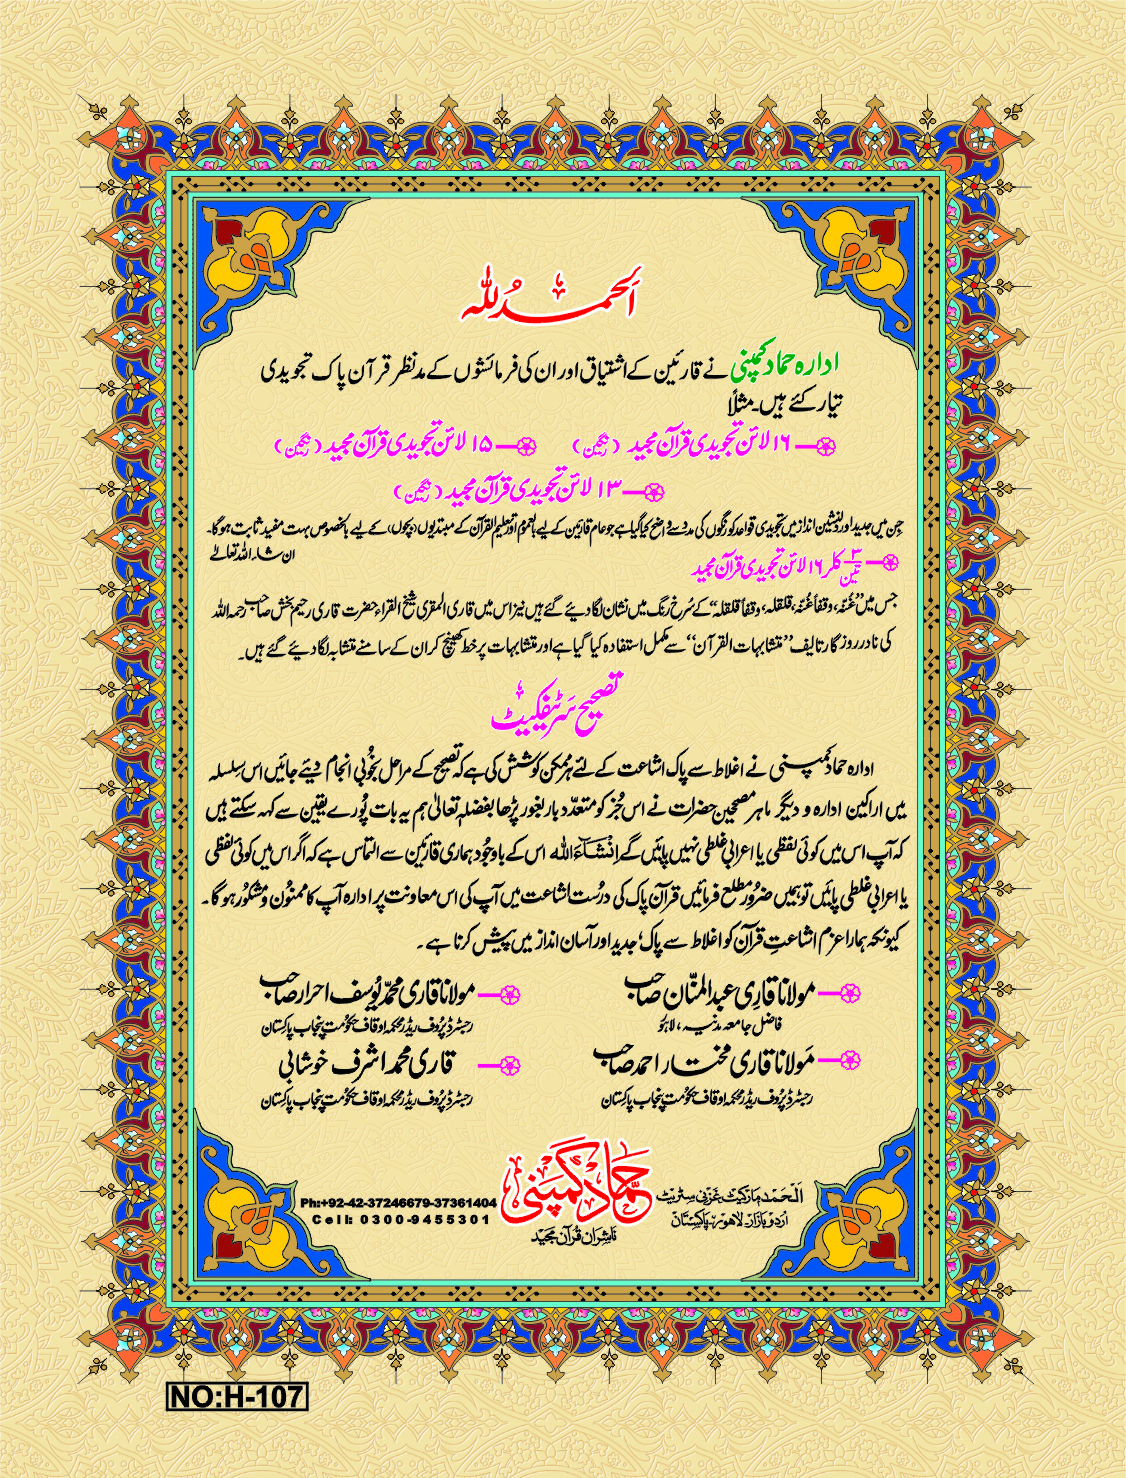 اَلحمدُ للہ
ادارہ حماد کمپنی نے قارئین کے اشتیاق اور ان کی فرمائشوں کے مدنظر قرآن پاک تجویدی
تیار کئے ہیں۔ مثلاً
۱۶ لائن تجویدی قرآن مجید (رنگین)
۱۵ لائن تجویدی قرآن مجید (رنگین)
۱۳ لائن تجویدی قرآن مجید (رنگین)
جن میں جدید اور دلنشین انداز میں تجویدی قواعد کو رنگوں کی مدد سے واضح کیا گیا ہے جو عام قارئین کے لیے بالعموم اور تعلیم القرآن کے مبتدیوں (بچوں) کے لیے بالخصوص بہت مفید ثابت ہوگا۔
ان شاء اللہ تعالےٰ
۳ تین کلر ۱۶ لائن تجویدی قرآن مجید
جس میں ”غُنّہ، وقفاً غُنّہ، قلقلہ، وقفاً قلقلہ“ کے سُرخ رنگ میں نشان لگا دیئے گئے ہیں نیز اس میں قاری المقری شیخ القراء حضرت قاری رحیم بخش صاحب رحمہ اللہ
کی نادر روزگار تالیف ”متشابہات القرآن“ سے مکمل استفادہ کیا گیا ہے اور متشابہات پر خط کھینچ کر ان کے سامنے متشابہ لگا دیئے گئے ہیں۔
تصحیح سَرٹیفکیٹ
ادارہ حماد کمپنی نے اغلاط سے پاک اشاعت کے لئے ہر ممکن کوشش کی ہے کہ تصحیح کے مراحل بخُوبی انجام دیئے جائیں اس سِلسلہ
میں اراکین ادارہ و دیگر ماہر مصححین حضرات نے اس جُز کو متعدّد بار بغور پڑھا بفضلہٖ تعالیٰ ہم یہ بات پُورے یقین سے کہہ سکتے ہیں
کہ آپ اس میں کوئی لفظی یا اعرابی غلطی نہیں پائیں گے اِنْشَآءَ اللہ اس کے باوجُود ہماری قارئین سے التماس ہے کہ اگر اس میں کوئی لفظی
یا اعرابی غلطی پائیں تو ہمیں ضرُور مطلع فرمائیں قرآن پاک کی درُست اشاعت میں آپ کی اس معاونت پر ادارہ آپ کا ممنُون و مشکُور ہوگا۔
کیونکہ ہمارا عزم اشاعتِ قرآن کو اغلاط سے پاک، جدید اور آسان انداز میں پیش کرنا ہے۔
مولانا قاری عبدالمنّان صاحب
مولانا قاری محمّد یُوسف احرار صاحب
فاضل جامعہ مدنیہ، لاہور
رجسٹرڈ پرُوف ریڈر محکمہ اوقاف حکُومت پنجاب پاکستان
مَولانا قاری مختار احمد صاحب
قاری محمد اشرف خوشابی
رجسٹرڈ پرُوف ریڈر محکمہ اوقاف حکُومت پنجاب پاکستان
رجسٹرڈ پرُوف ریڈر محکمہ اوقاف حکُومت پنجاب پاکستان
حمّاد کمپنی
ناشران قرآن مجید
اَلْحَمْد مارکیٹ غزنی سٹریٹ
اردو بازار لاہور، پاکستان
Ph:+92-42-37246679-37361404
Cell: 0300-9455301
NO:H-107